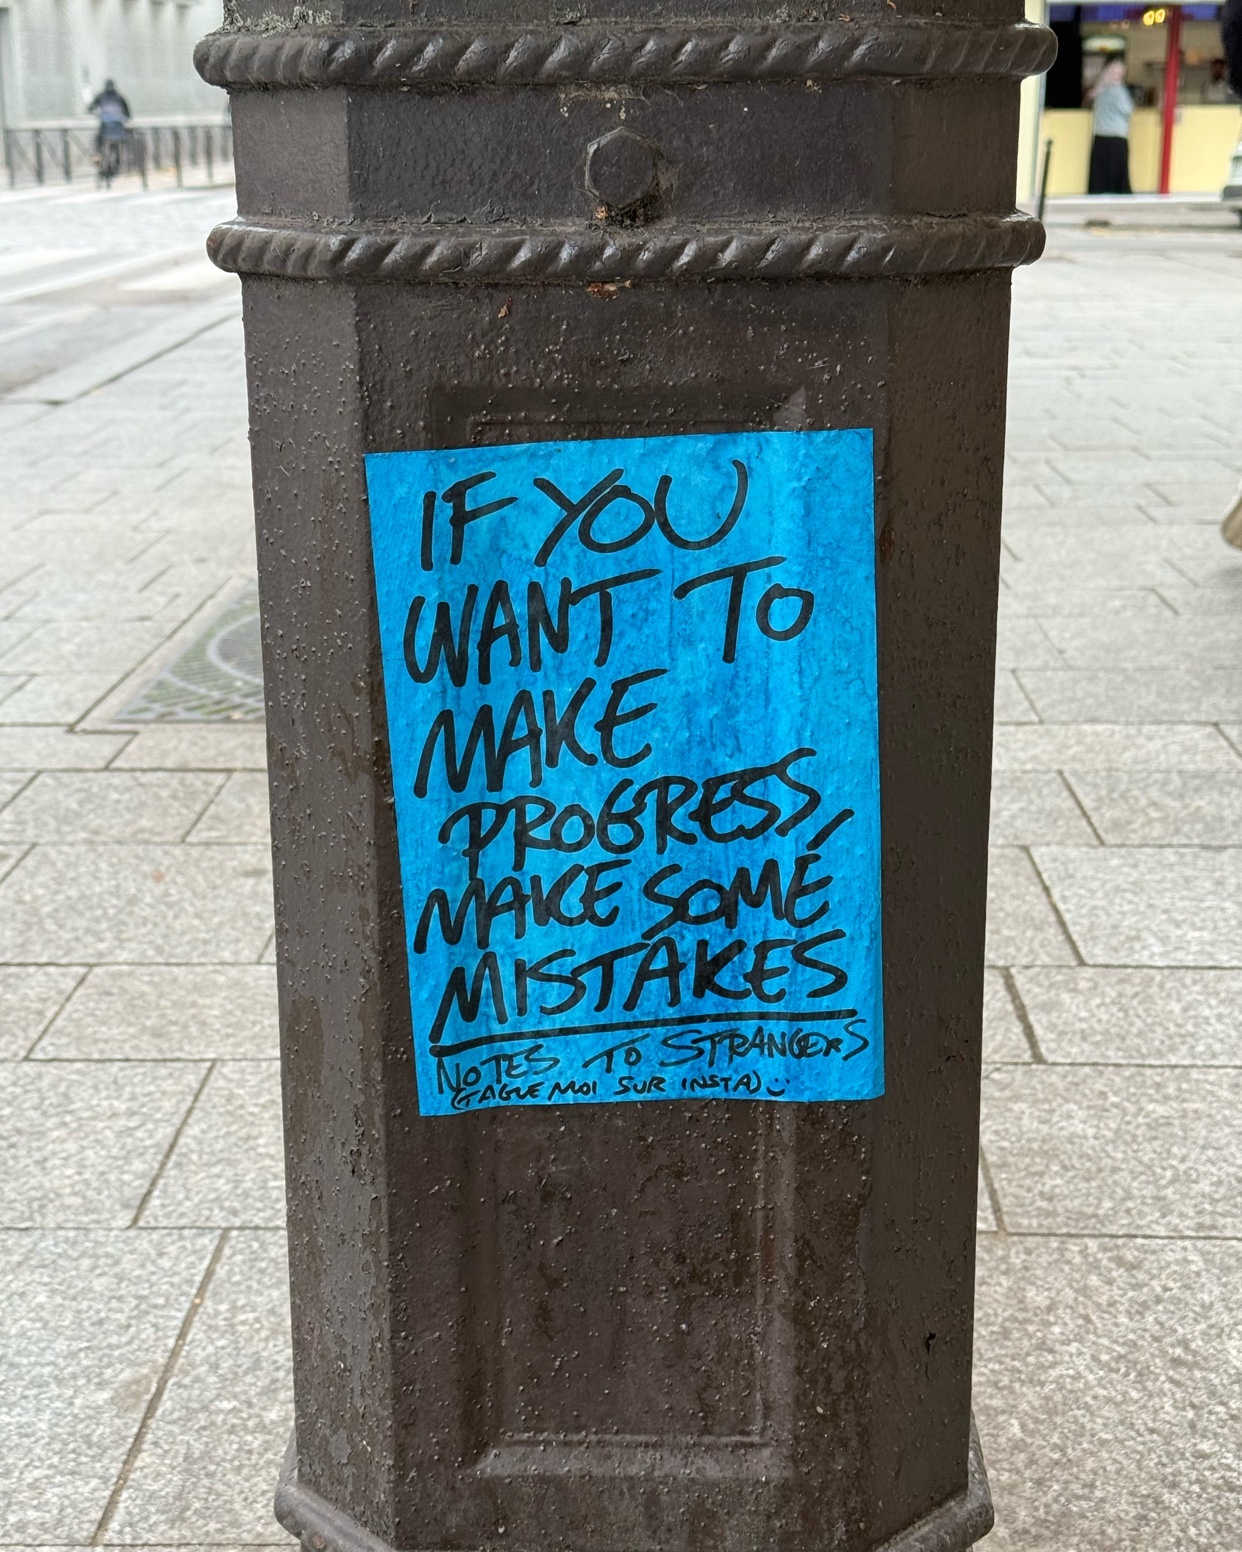 IF YOU
WANT TO
MAKE
PROGRESS,
MAKE SOME
MISTAKES
NOTES TO STRANGERS
(TAGUE MOI SUR INSTA) :)